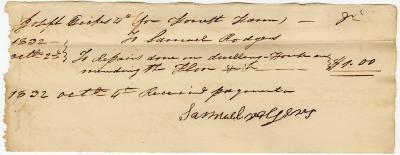 Joseph (for Forrest Farm) — Dr
1832 — To Samuel Rodgers
octbr 2nd } To Repairs done on dwelling House and
mending the Floor — } $1.00
1832 octbr 4th Received payment
Samuel Rodgers